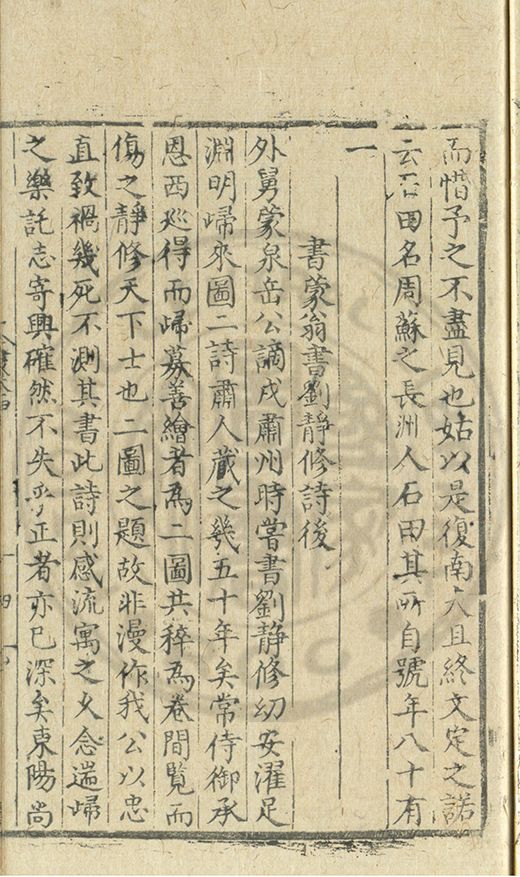 而惜予之不盡見也姑以是復南大且終文定之諾
云石田名周蘇之長洲人石田其所自號年八十有
一
書蒙翁書劉静修詩後
外舅蒙泉岳公謫戍肅州時嘗書劉静修幼安濯足
淵明歸來圖二詩肅人藏之幾五十年矣常侍御承
恩西廵得而歸募善繪者為二圖共稡為卷間覽而
傷之静修天下士也二圖之題故非漫作我公以忠
直致禍幾死不測其書此詩則感流寓之乆念遄歸
之樂託志寄興確然不失乎正者亦已深矣東陽尚